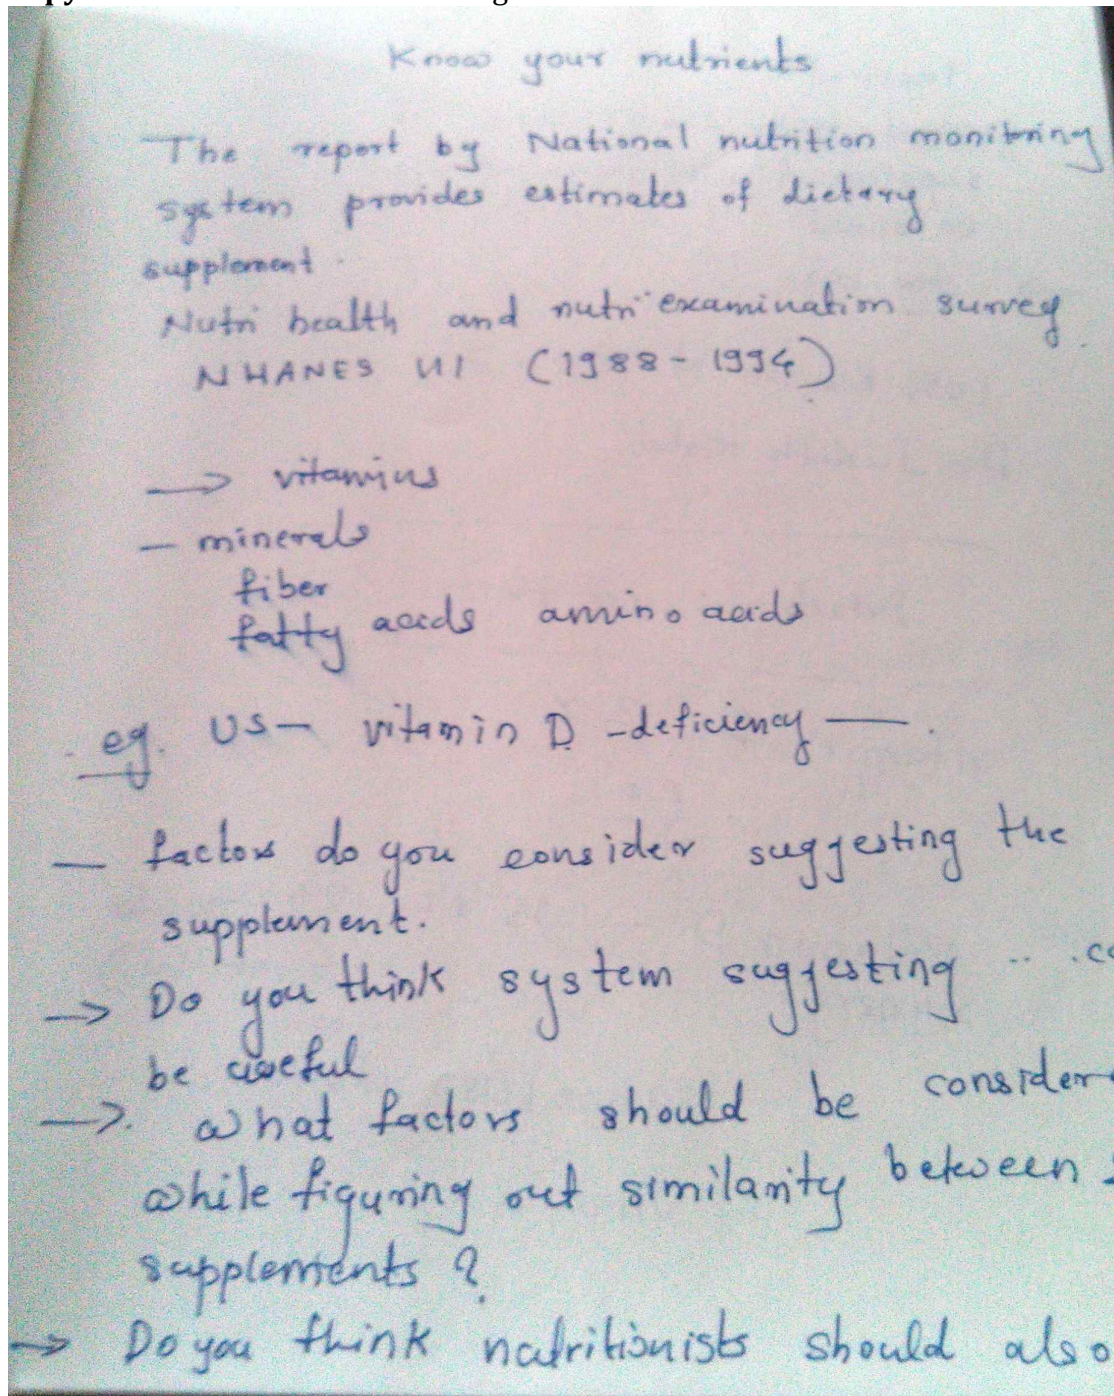 Know your nutrients
The report by National nutrition monitoring
system provides estimates of dietary
supplement.
Nutri health and nutri examination survey
NHANES UI (1988 - 1994)
→ vitamins
— minerals
fiber
fatty acids amino acids
eg. US — vitamin D - deficiency — .
— factors do you consider suggesting the
supplement.
→ Do you think system suggesting ..
be useful
→. What factors should be
while figuring out similarity between
supplements ?
→ Do you think nutritionists should also